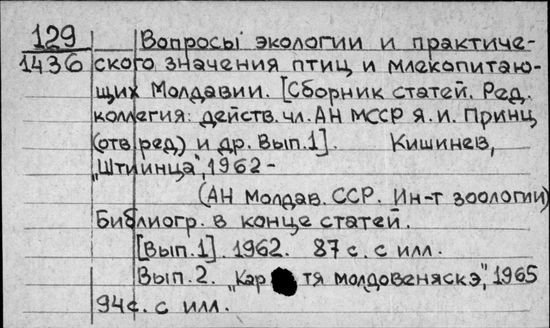 129
1436
Вопросы экологии и практиче-
ского значения птиц и млекопитаю-
щих Молдавии. [Сборник статей. Ред.
коллегия: действ. чл. АН МССР Я. И. Принц
(отв ред) и др. Вып. 1]. Кишинев,
„Штиинца", 1962 -
(АН Молдав. ССР. Ин-т зоологии)
Библиогр. в конце статей.
[Вып. 1]. 1962. 87 с. с илл.
Вып. 2. „Кар тя молдовеняскэ", 1965
94 с. с илл.